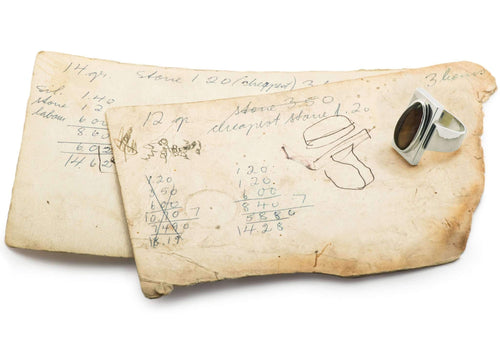 14 gr. Stone 1 20 (cheapest) 3
3 hours
Sil. 1.40
Stone 1.2
labour 6 00
8.60
6 02
14.62
12 gr. Stone 3 50
cheapest stone 1.20
1 20
3 50
6 00
10.70 7
7 490
18.19
1 20.
1 20.
6 00
8 40 7
5 880
14.28